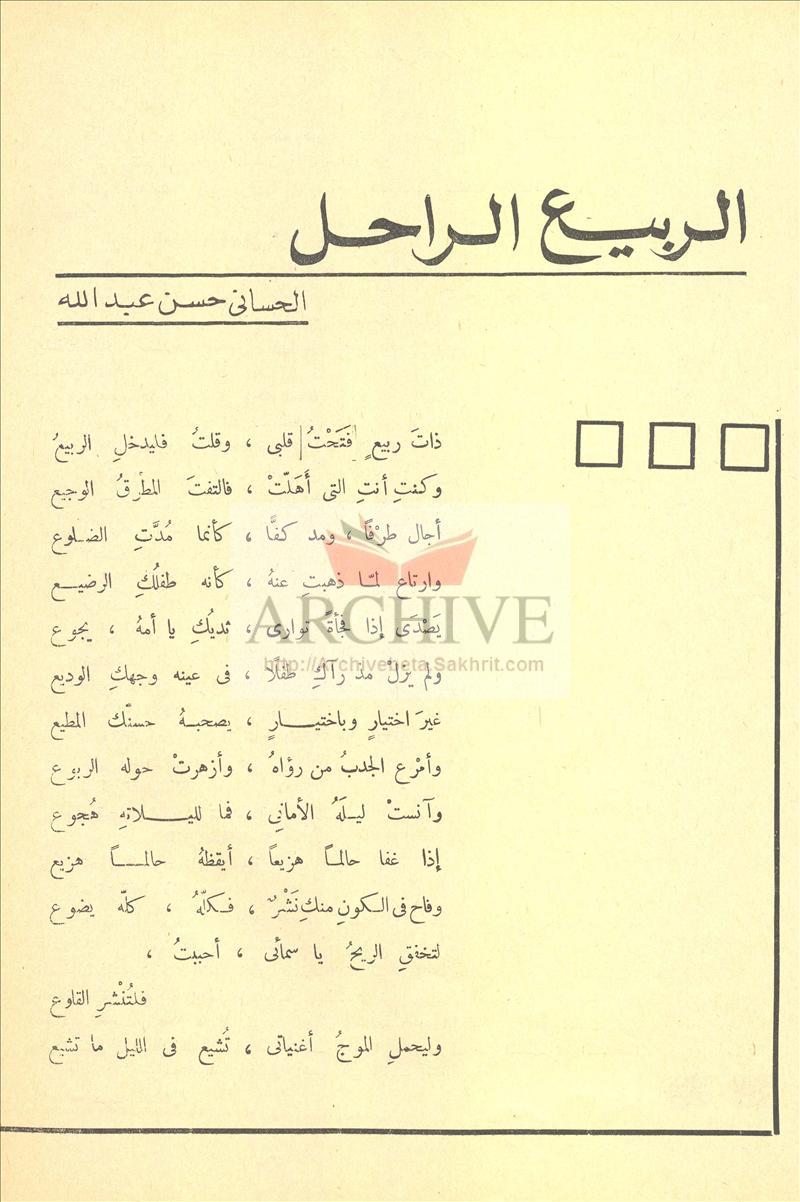 الربيع الراحل
الحسانى حسن عبد الله
ذاتَ ربيعٍ فَتَحْتُ قلبى ، وقلتُ فليدخلِ الربيعُ
وكنتِ أنتِ التى أَهَلّتْ ، فالتفتَ المطرقُ الوجيع
أجال طرْفًا ، ومد كفًّا ، كأنما مُدَّتِ الضلوع
وارتاع لمّا ذهبتِ عنهُ ، كأنه طفلُكِ الرضيع
يَصْدَى إذا فجأةً توارى ، ثديُكِ يا أمهُ ، يجوع
ولم يزلْ مذ رآكِ طفلًا ، فى عينه وجهكِ الوديع
غيرَ اختيارٍ وباختيارٍ ، يصحبهُ حسنُك المطيع
وأمْرع الجدبُ من رؤاهُ ، وأزهرتْ حوله الربوع
وآنستْ ليلَهُ الأمانى ، فما لليلاتهِ هُجوع
إذا غفا حالمًا هزيعاً ، أيقظهُ حالمًا هزيع
وفاح فى الكونِ منكِ نَشْرٌ ، فكلّهُ ، كلّه يضوع
لتخفقِ الريحُ يا سمائى ، أحببتُ ،
فلتُنْشرِ القلوع
وليحملِ الموجُ أغنياتى ، تُشيع فى الليل ما تشيع
ARCHIVE
http://Archivebeta.Sakhrit.com